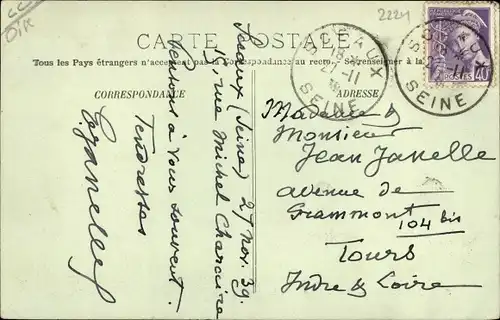 CC
OIR
2224
CARTE POSTALE
Tous les Pays étrangers n'acceptent pas la Correspondance au recto. Se renseigner à la
CORRESPONDANCE
ADRESSE
SCEAUX
SEINE
SCEAUX
SEINE
POSTES
40
Sceaux (Seine) 27 Nov. 39.
15, rue Michel Charaire
Pensons à vous souvent.
Tendresses
Madame &
Monsieur
Jean Janelle
avenue de
Grammont
104 bis
Tours
Indre & Loire